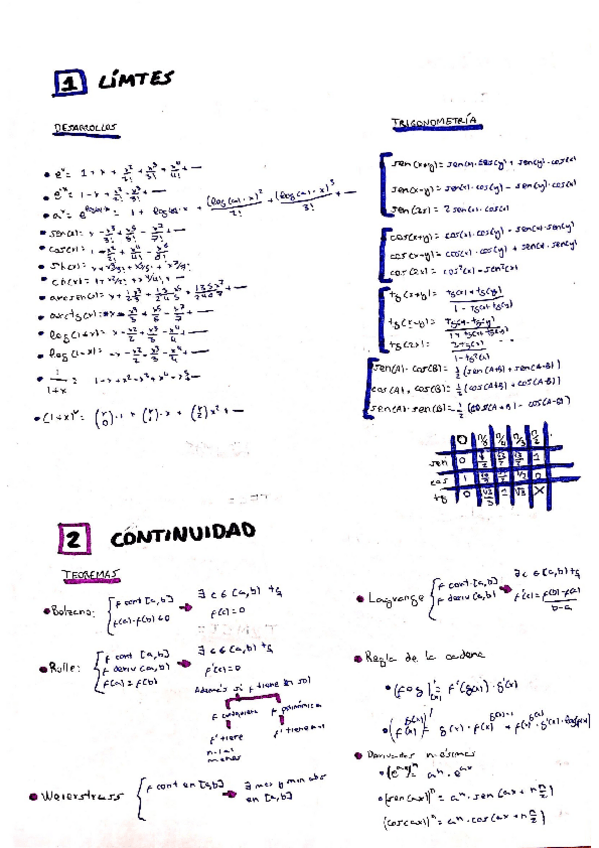 1 LÍMTES
DESARROLLOS
• e^x = 1 + x + x²/2! + x³/3! + x⁴/4! + —
• e^-x = 1 - x + x²/2! - x³/3! + —
• a^x = e^(log(a)·x) = 1 + log(a)·x + (log(a)·x)²/2! + (log(a)·x)³/3! + —
• sen(x) =
• cos(x) =
• sh(x) =
• ch(x) =
• arcsen(x) =
• arctg(x) =
• log(1+x) = x - x²/2 + x³/3 - x⁴/4 + —
• log(1-x) = -x - x²/2 - x³/3 - x⁴/4 + —
• 1/(1+x) = 1 - x + x² - x³ + x⁴ - x⁵ + —
• (1+x)^r = (r 0)·1 + (r 1)·x + (r 2)x² + —
TRIGONOMETRÍA
sen(x+y) = sen(x)·cos(y) + sen(y)·cos(x)
sen(x-y) = sen(x)·cos(y) - sen(y)·cos(x)
sen(2x) = 2sen(x)·cos(x)
cos(x+y) = cos(x)·cos(y) - sen(x)·sen(y)
cos(x-y) = cos(x)·cos(y) + sen(x)·sen(y)
cos(2x) = cos²(x) - sen²(x)
tg(x+y) = tg(x)+tg(y) / 1 - tg(x)·tg(y)
tg(x-y) = tg(x)-tg(y) / 1 + tg(x)·tg(y)
tg(2x) = 2tg(x) / 1 - tg²(x)
sen(A)·cos(B) = 1/2 (sen(A+B) + sen(A-B))
cos(A)·cos(B) = 1/2 (cos(A+B) + cos(A-B))
sen(A)·sen(B) = 1/2 (cos(A+B) - cos(A-B))
0 π/6 π/4 π/3 π/2
sen 0 1
cos 1 0
tg 0 1 √3 X
2 CONTINUIDAD
TEOREMAS
• Bolzano: f cont [a,b] f(a)·f(b)<0 → ∃ c ∈ (a,b) tq f(c)=0
• Rolle: f cont [a,b] f deriv (a,b) f(a)=f(b) → ∃ c ∈ (a,b) tq f'(c)=0
Además si f tiene n sol
f cualquiera f polinómica
f' tiene n-1 al menos
f' tiene n-1
• Weierstrass f cont en [a,b] → ∃ max y min abs en [a,b]
• Lagrange f cont [a,b] f deriv (a,b) → ∃ c ∈ (a,b) tq f'(c) = f(b)-f(a) / b-a
• Regla de la cadena
• (f o g)'(x) = f'(g(x))·g'(x)
• (f(x)^g(x))' = g(x)·f(x)^g(x)-1 + f(x)^g(x)·g'(x)·log f(x)
• Derivadas n-ésimas
• (e^ax)^n = a^n·e^ax
• (sen(ax))^n = a^n·sen(ax + n π/2)
(cos(ax))^n = a^n·cos(ax + n π/2)